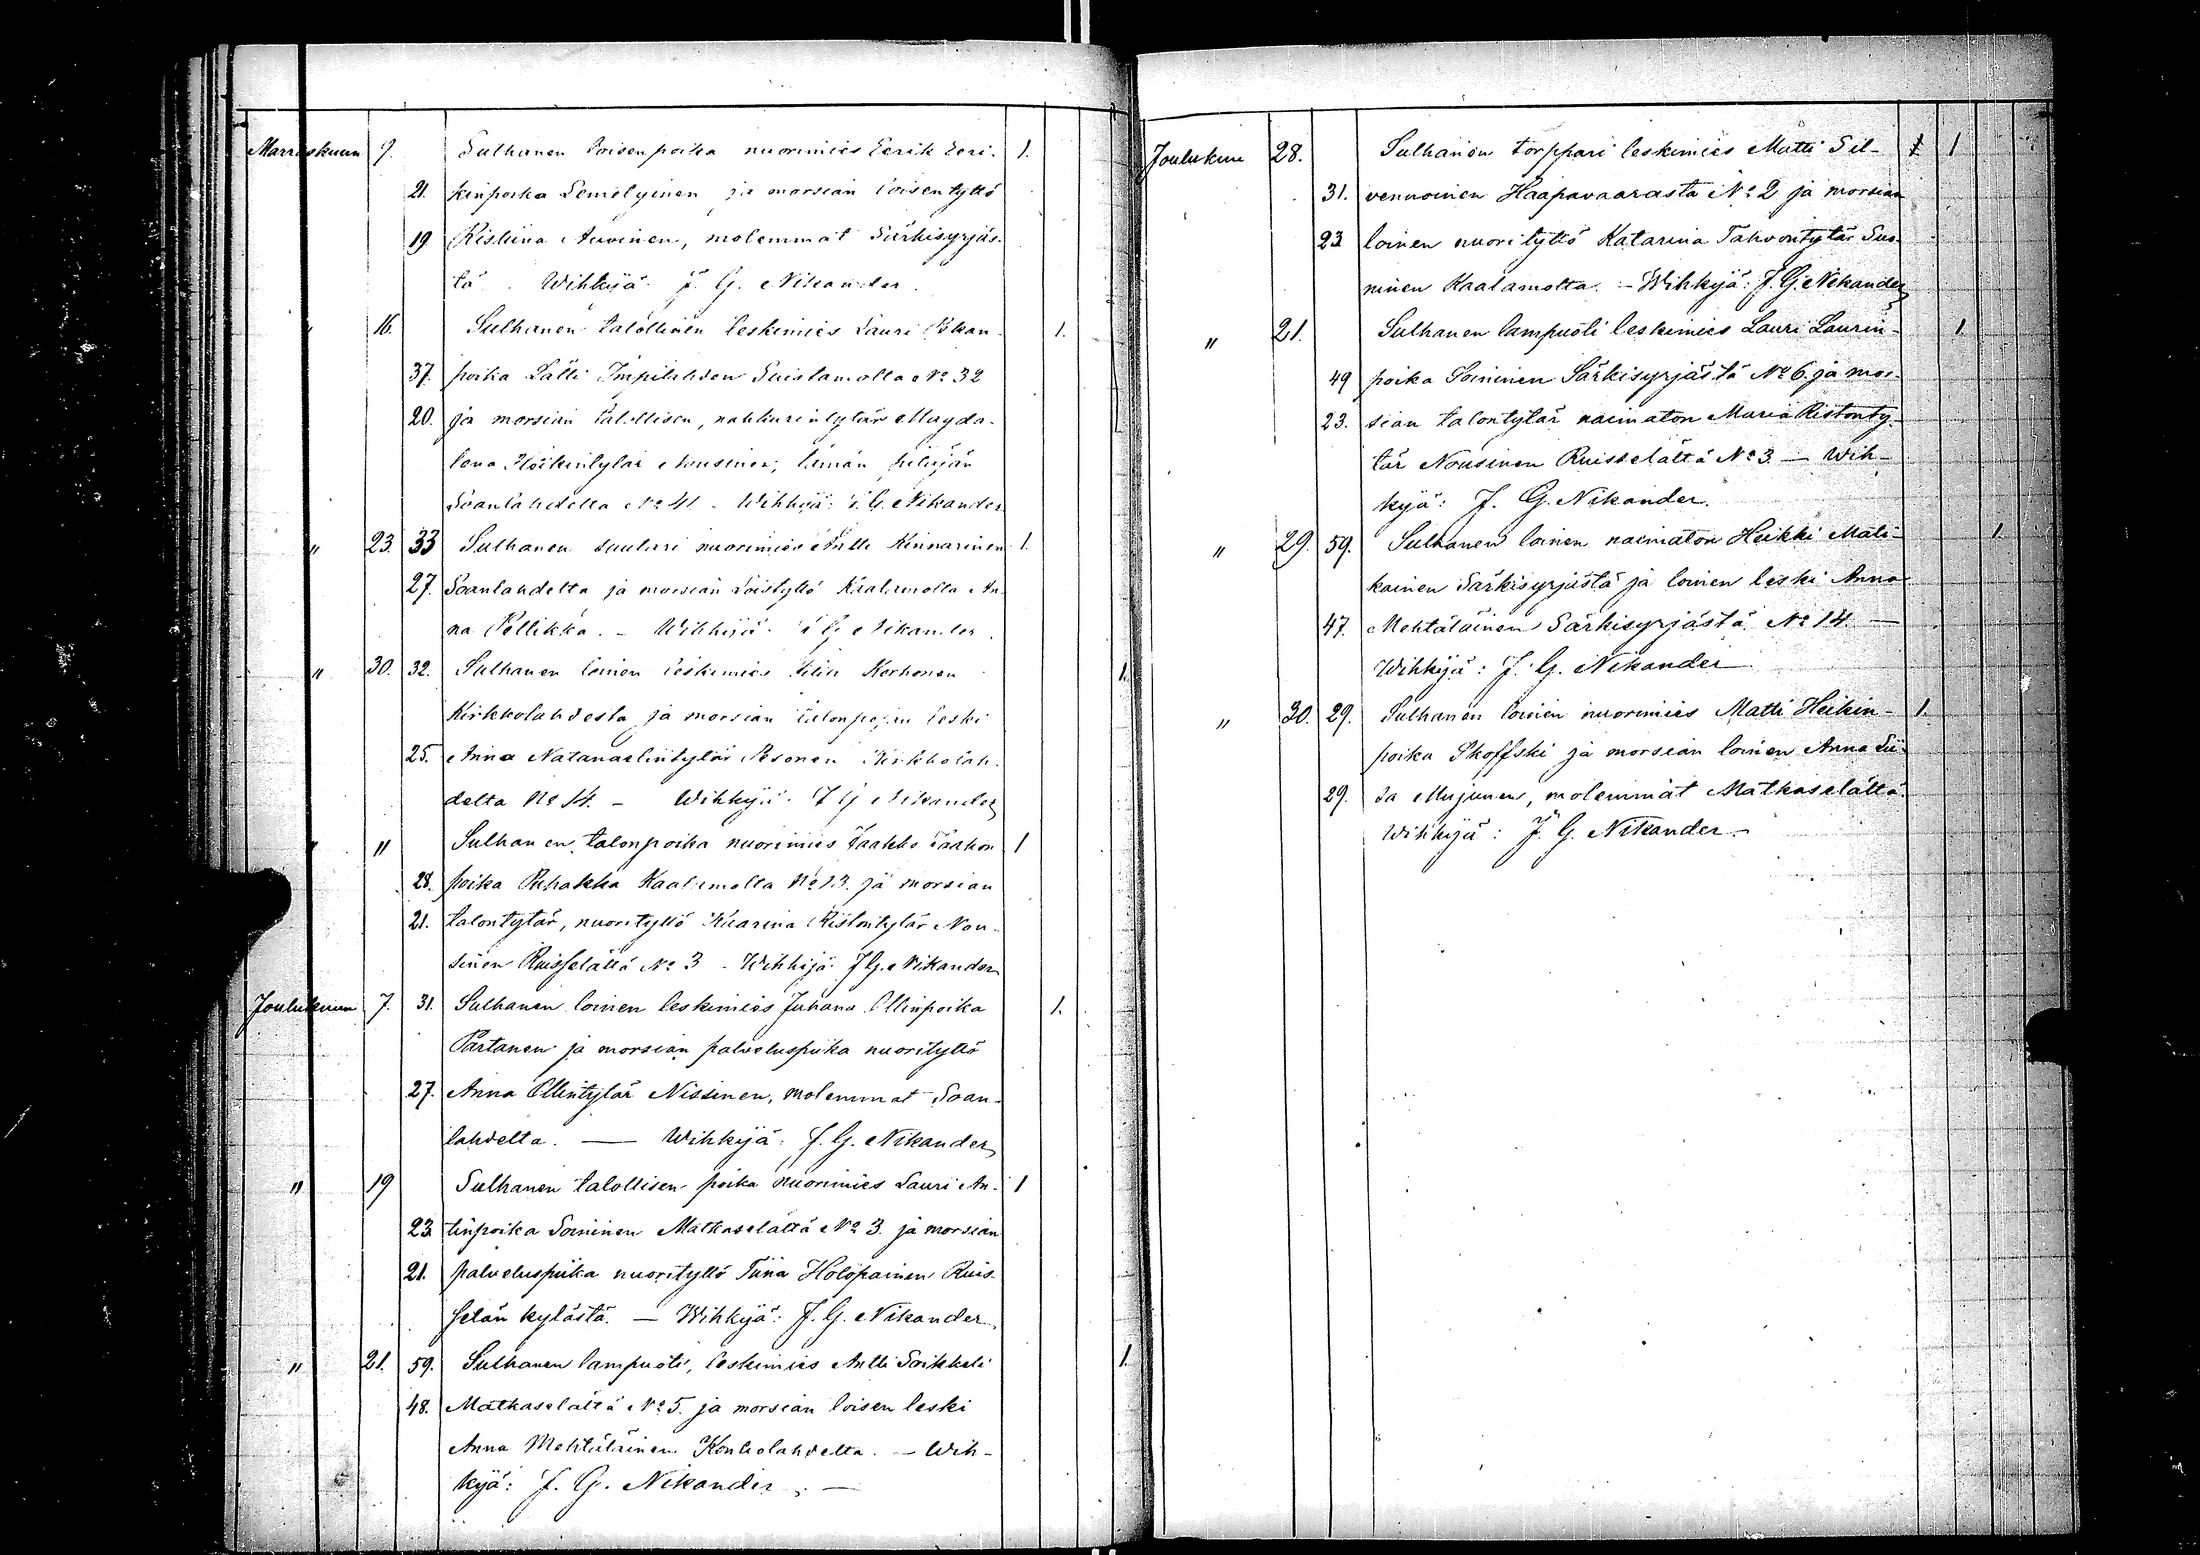 Marraskuun 9. Sulhanen loisenpoika nuorimies Eerik Eeri- 1.
21. kinpoika Lemelyinen ja morsian loisentyttö
19 Ristiina Auvinen, molemmat Särkisyrjäs-
tä. Wihkijä J. G. Nikander.
" 16. Sulhanen talollinen leskimies Lauri 1.
37. poika Lätti Suistamolta No 32
20. ja morsian talollisen, Magda-
lena Nousinen, tämän
Soanlahdelta No 41 - Wihkijä: J. G. Nikander
" 23. 33 Sulhanen suutari nuorimies Antti Kinnarinen 1.
27. Soanlahdelta ja morsian loistyttö Kaalamolta An-
na Pellikka. - Wihkijä J G Nikander.
" 30. 32. Sulhanen loinen leskimies Korhonen 1.
Kirkkolahdesta ja morsian talonpojan leski
25. Anna Natanaelintytär Pesonen Kirkkolah-
delta No 14. - Wihkijä. J G Nikander
" " Sulhanen talonpoika nuorimies Jaakko Jaakon 1
28. poika Puhakka Kaalamolta No 13. ja morsian
21. talontytär, nuorityttö Kaarina Ristontytär Nou-
sinen Ruisselältä No 3 - Wihkijä J G. Nikander
Joulukuun 7. 31. Sulhanen loinen leskimies Juhana Ollinpoika 1.
Partanen ja morsian palveluspiika nuorityttö
27. Anna Ollintytär Nissinen, molemmat Soan-
lahdelta. — Wihkijä: J. G. Nikander
" 19 Sulhanen talollisen poika nuorimies Lauri An- 1
23 tinpoika Soininen Matkaselältä No 3. ja morsian
21. palveluspiika nuorityttö Tiina Holopainen Ruis-
selän kylästä. — Wihkijä: J. G. Nikander.
" 21. 59. Sulhanen lampuoti, leskimies Antti Soikkeli 1
48. Matkaselältä No 5. ja morsian loisen leski
Anna Mehtäläinen Konholahdelta. — Wih-
kijä: J. G. Nikander. —
Joulukuu 28. Sulhanen torppari leskimies Matti Sil- 1 1
31. vennoinen Haapavaarasta No 2 ja morsian
23 loinen nuorityttö Katarina Tahvontytär Suo-
ninen Kaalamolta. — Wihkijä: J. G. Nikander
" 21. Sulhanen lampuoti leskimies Lauri Laurin- 1.
49 poika Soininen Särkisyrjästä No 6. ja mor-
23. sian talontytär naimaton Maria Ristonty-
tär Nousinen Ruisselältä No 3. — Wih-
kijä: J. G. Nikander.
" 29. 59. Sulhanen loinen naimaton Heikki Mati- 1.
kainen Särkisyrjästä ja loinen leski Anna
47. Mehtäläinen Särkisyrjästä No 14. —
Wihkijä: J. G. Nikander
" 30. 29. Sulhanen loinen nuorimies Matti Heikin- 1.
poika Skoffski ja morsian loinen Anna Lii-
29. sa Mujunen, molemmat Matkaselältä.
Wihkijä: J. G. Nikander. -